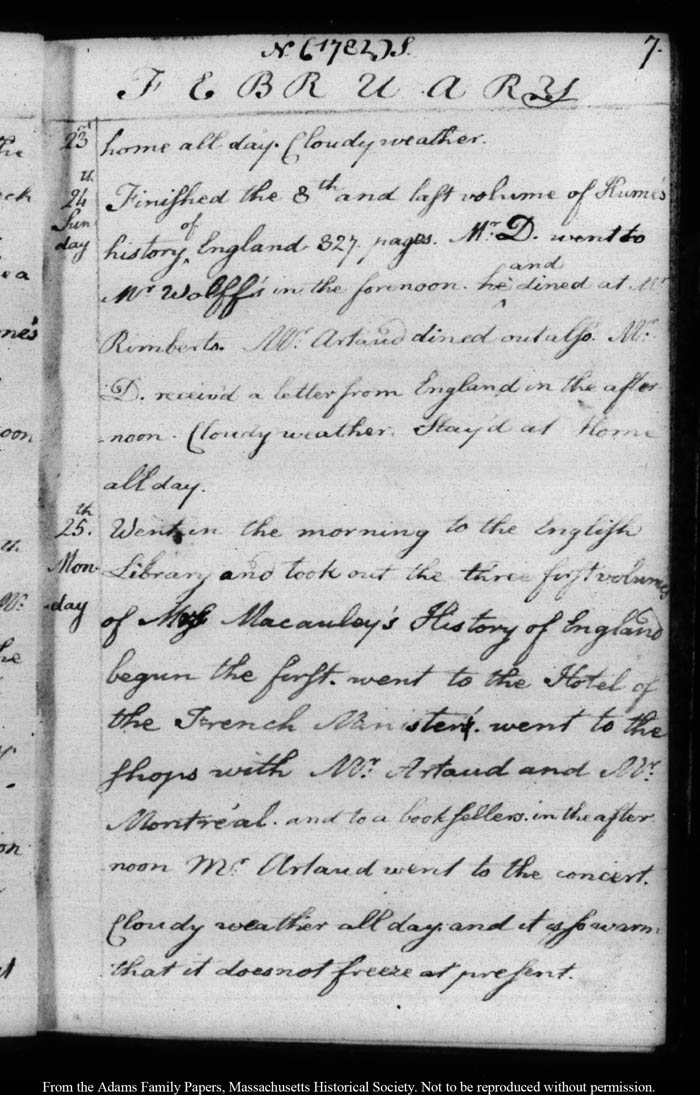 N. (1782,) S.
7.
FEBRUARY
23d
home all day. Cloudy weather.
24th Sunday
Finished the 8th and last volume of Hume's
history of England 327. pages. Mr. D. went to
Mr Wolff's in the forenoon. he and dined at Mr
Rimberts. Mr. Artaud dined out also. Mr.
D. receiv'd a letter from England in the after
noon. Cloudy weather. Stay'd at Home
all day.
25.th Mon-day
Went in the morning to the English
Library and took out the three first volumes
of Mrs Macauley's History of England
begun the first. went to the Hotel of
the French Minister's. went to the
shops with Mr. Artaud and Mr.
Montréal. and to a booksellers. in the after
noon Mr. Artaud went to the concert.
Cloudy weather all day. and it is so warm
that it does not freeze at present.
From the Adams Family Papers, Massachusetts Historical Society. Not to be reproduced without permission.